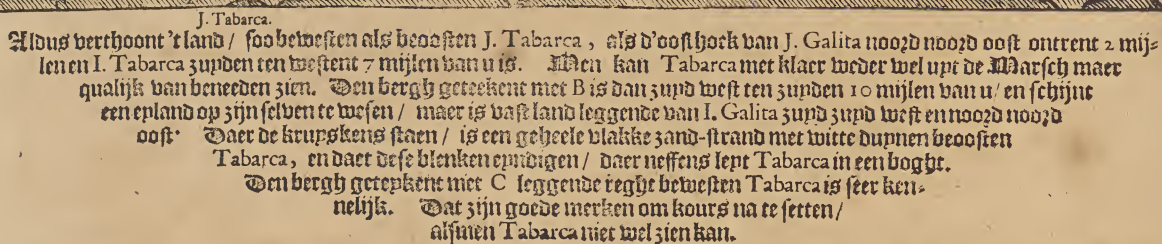 J. Tabarca.
Aldus verthoont 't land / soo bewesten als beoosten J. Tabarca , als d'oosthoek van J. Galita noozd noozd oost ontrent 2 mij-
len en I. Tabarca zuyden ten westent 7 mijlen van u is. Men kan Tabarca met klaer weder wel uyt de Marsch maer
qualijk van beneeden zien. Den bergh geteekent met B is dan zuyd west ten zuyden 10 mijlen van u / en schijnt
een eyland op zijn selven te wesen / maer is vast land leggende van I. Galita zuyd zuyd west en noozd noozd
oost. Daer de kruyskens staen / is een geheele vlakke zand-strand met witte duynen beoosten
Tabarca, en daer dese blenken eyndigen / daer neffens leyt Tabarca in een boght.
Den bergh geteykent met C leggende reght bewesten Tabarca is seer ken-
nelijk. Dat zijn goede merken om kours na te setten /
alsmen Tabarca niet wel zien kan.